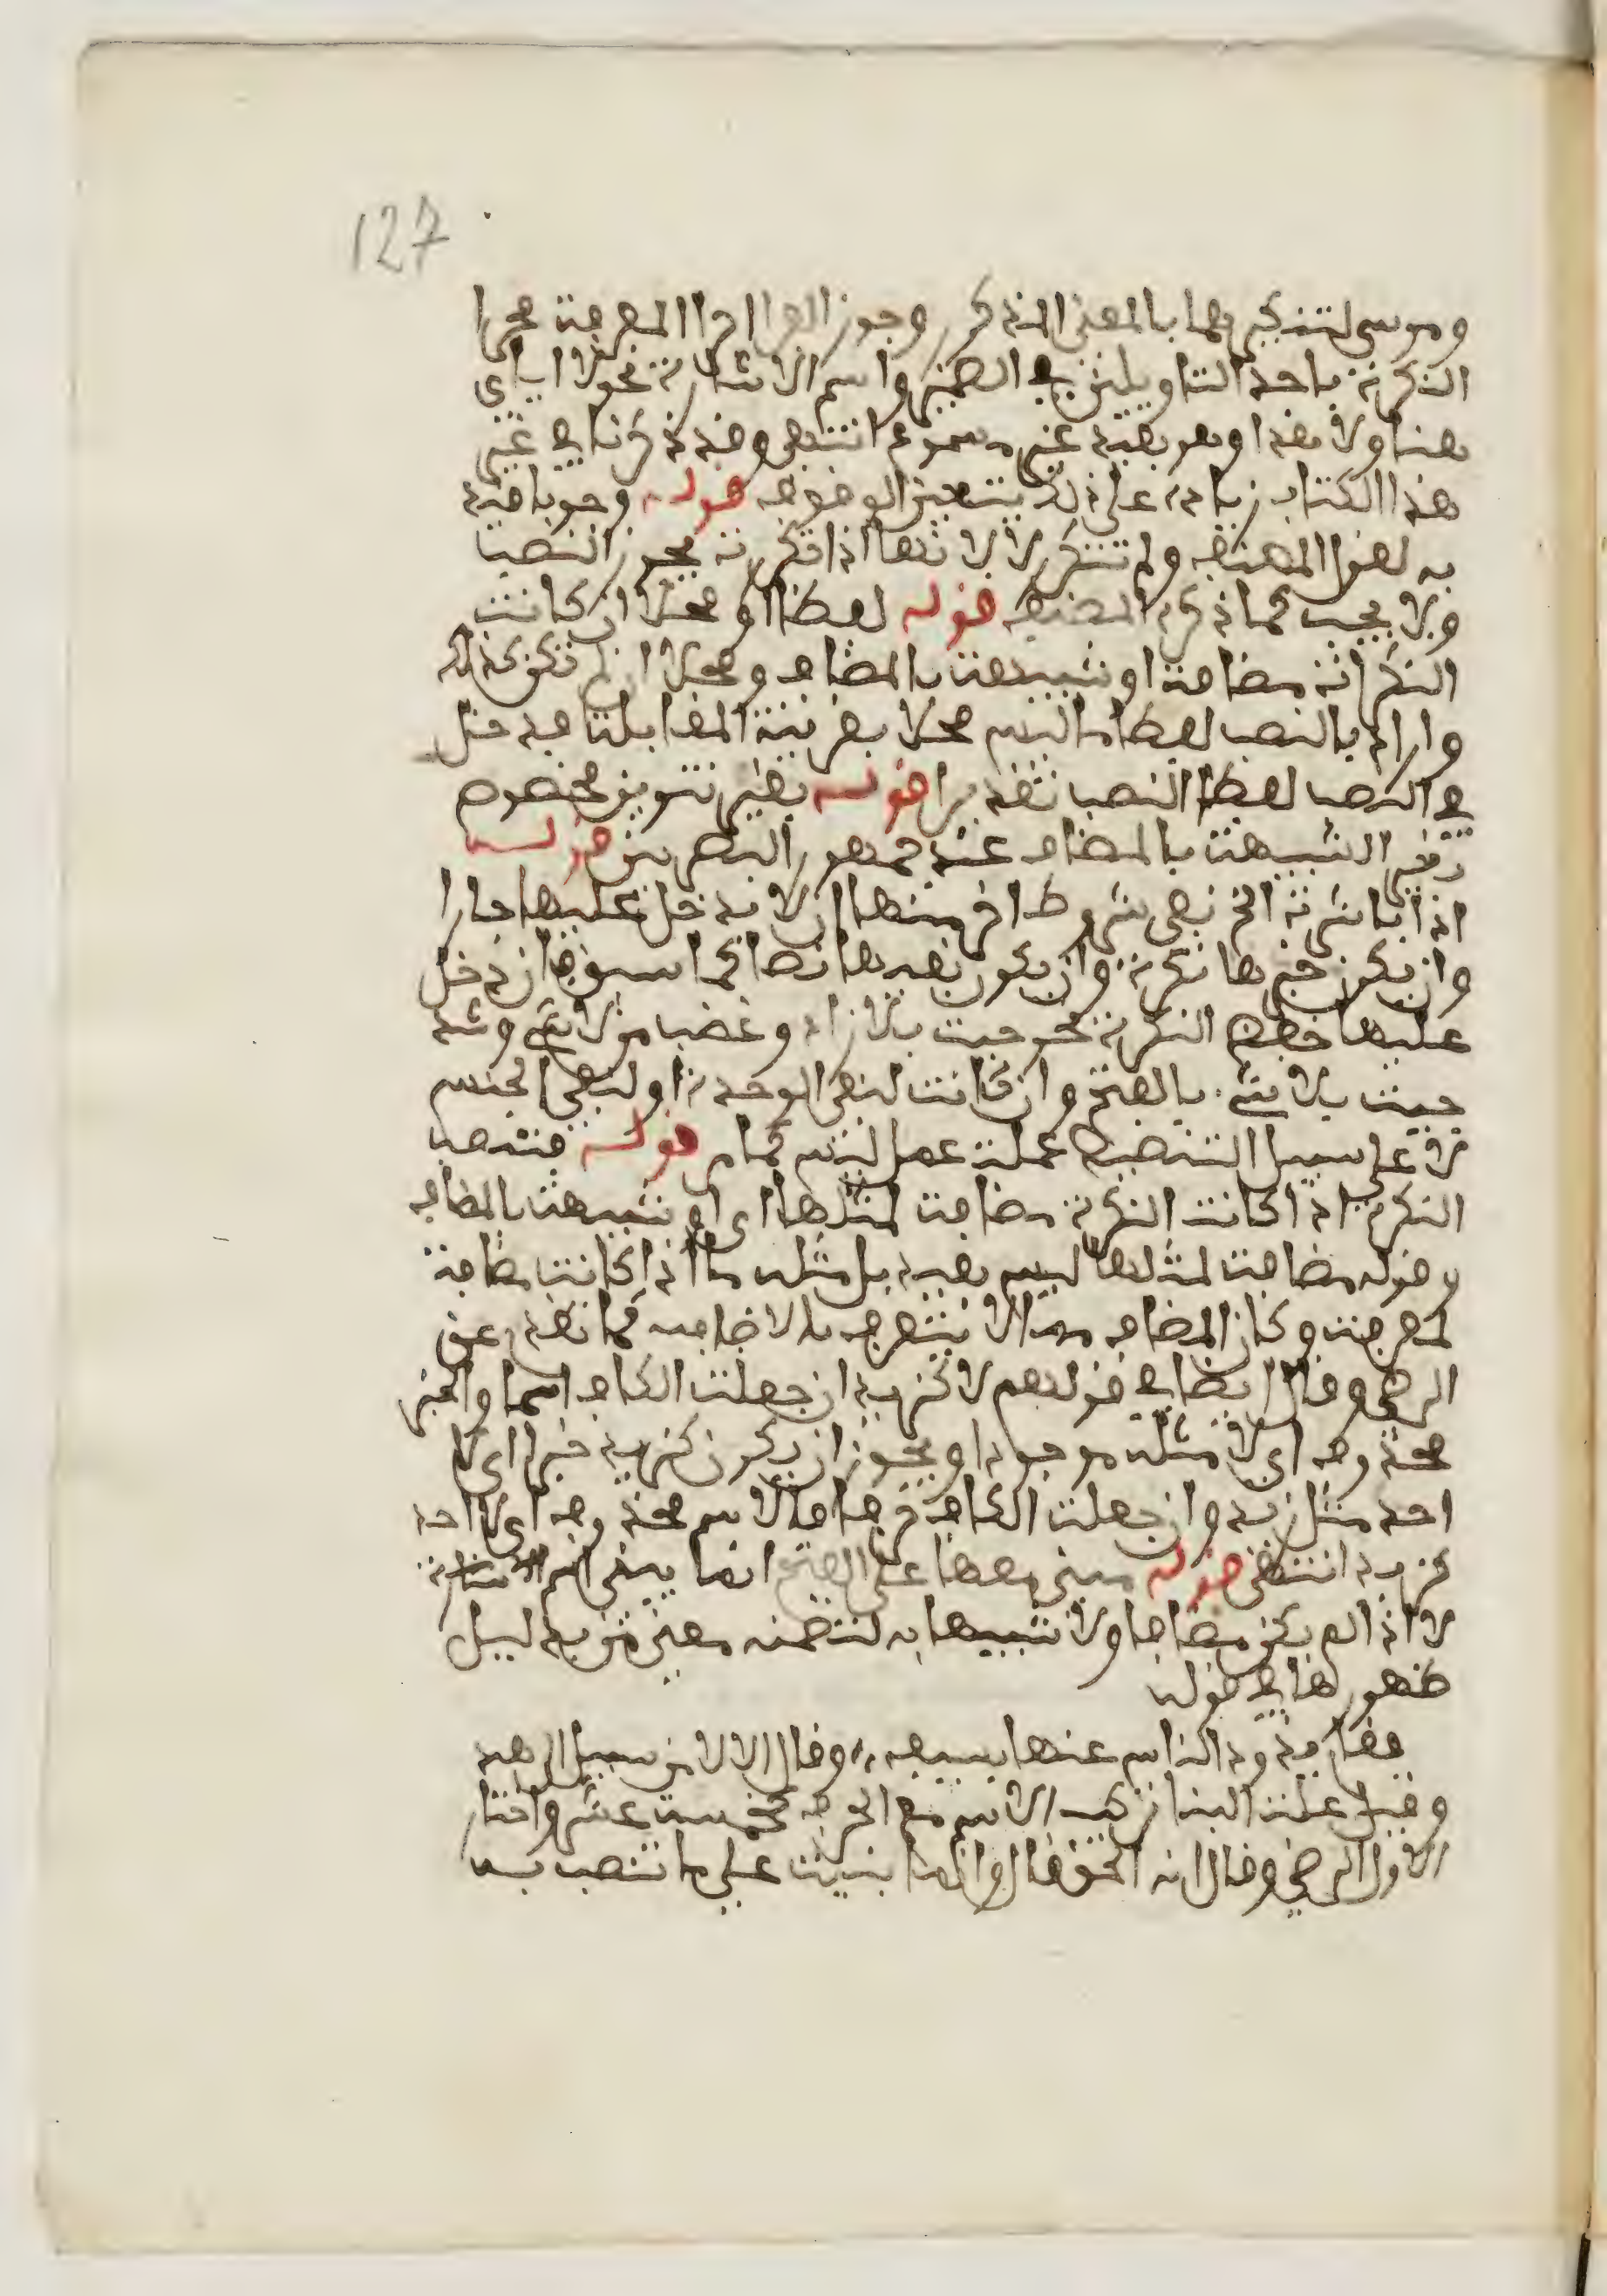 127
وموسى لتنكيرهما بالمعنى المذكور وجوز الفرا اجرا المعرفة مجرا
النكرة باحد التاويلين في الضمير واسم الاشارة نحو لا اياي
هنا ولا هذا وهو بعيد غير مسموع انتهى وقد ذكرنا في غير
هذا الكتاب زيادة على ذلك يتعين الوقوف قوله وجوبا قيد
به لقول المصنف ولم تتكرر لا لانها اذا تكررت يجوز النصب
ولا يجب كما ذكره المصنف قوله لفظا او محلا ان كانت
النكراة مضافة او شبيهة بالمضاف ومحلا ان لم تكن كذلك
واراد بالنصب لفظا ما ليس محلا بقرينة المقابلة فيدخل
في النصب لفظا النصب تقديرا قوله بغير تنوين مخصوص
بغير الشبيهة بالمضاف عند جمهور البصريين قوله
اذا باشرت الخ بقي شروط اخر منها ان لا يدخل عليها جارا
وان يكون خبرها نكرة وان يكون نفيها نصا كما سبق فان دخل
عليها خفض النكرة نحو جيت بلا زاد وغضب من لا شي وشد
جيت بلا شي بالفتح وان كانت لنفي الوحدة او لنفي الجنس
لا على سبيل التنصيص عملت عمل ليس كما مر قوله فتنصب
النكرة اذا كانت النكرة مضافة لمثلها اي او شبيهة بالمضاف
وقوله مضافة لمثلها ليس بقيد بل مثله ما اذا كانت مضافة
لمعرفة وكان المضاف مما لا يتعرف بالاضافة كما تقدم عن
الرضي وقال ايضا في قولهم لا كزيد ان جعلت الكاف اسما والخبر
محذوف اي لا مثله موجودا ويجوز ان يكون كزيد خبرا اي لا
احد مثل زيد وان جعلت الكاف حرفا فالاسم محذوف اي لا احد
كزيد انتهى قوله مبني معها على الفتح انما يبنى اسم
لا اذا لم يكن مضافا ولا شبيها به لتضمنه معنى من بدليل
ظهورها في قوله
فقام يذود الناس عنها بسيفه ،، وقال الا لا من سبيل الى هند
وقيل علة البنا تركيب الاسم مع الحرف كخمسة عشر واختار
الاول الرضي وقال انه الحق قال وانما بنيت على ما تنصب به